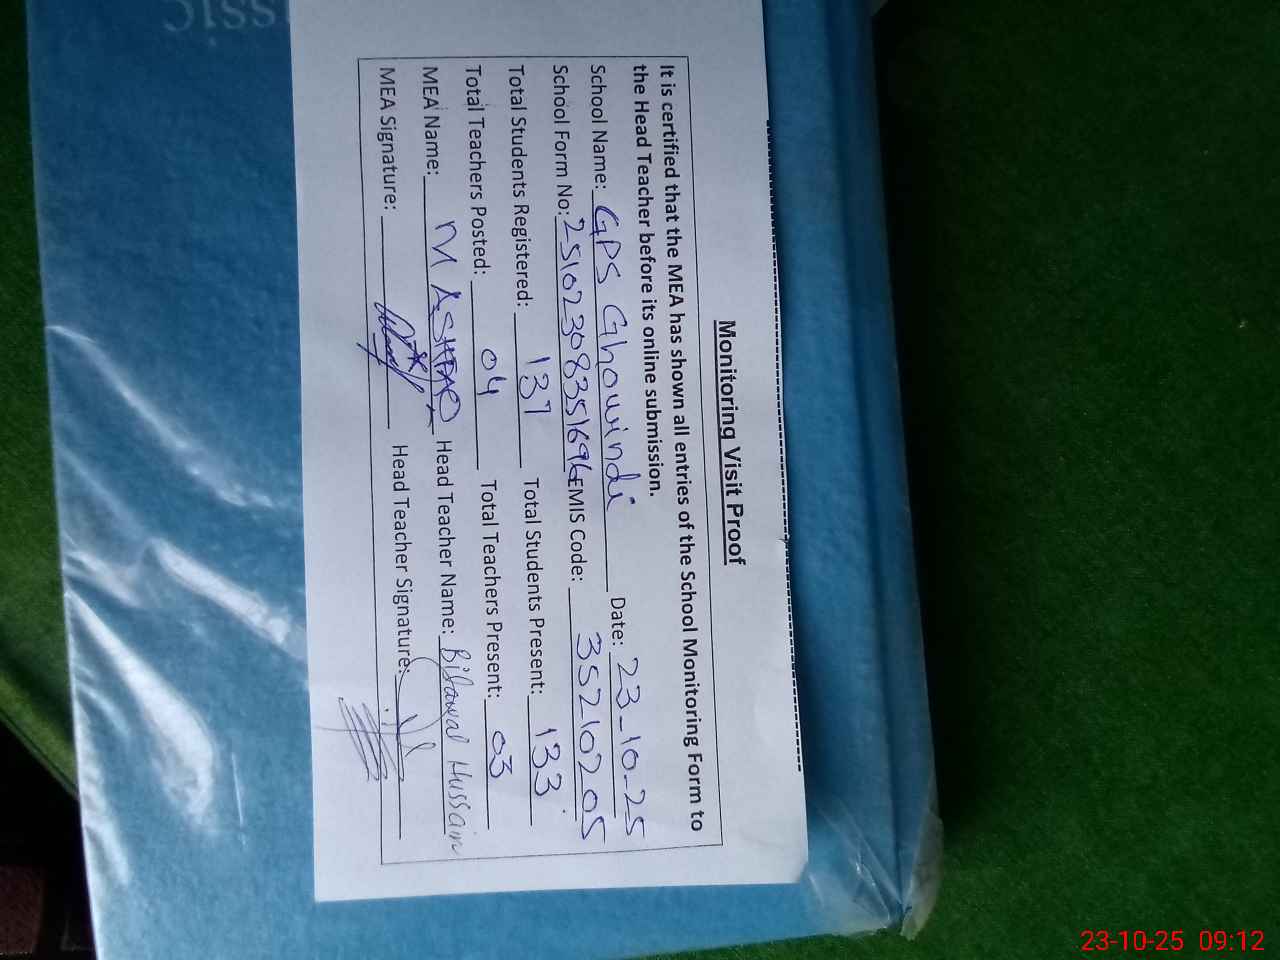 Monitoring Visit Proof
It is certified that the MEA has shown all entries of the School Monitoring Form to
the Head Teacher before its online submission.
School Name: GPS Ghowindi Date: 23-10-25
School Form No: 25102308351696 EMIS Code: 35210205
Total Students Registered: 137 Total Students Present: 133
Total Teachers Posted: 04 Total Teachers Present: 03
MEA Name: M ASHFAQ Head Teacher Name: Bilawal Hussain
MEA Signature: Head Teacher Signature:
ssic
23-10-25 09:12